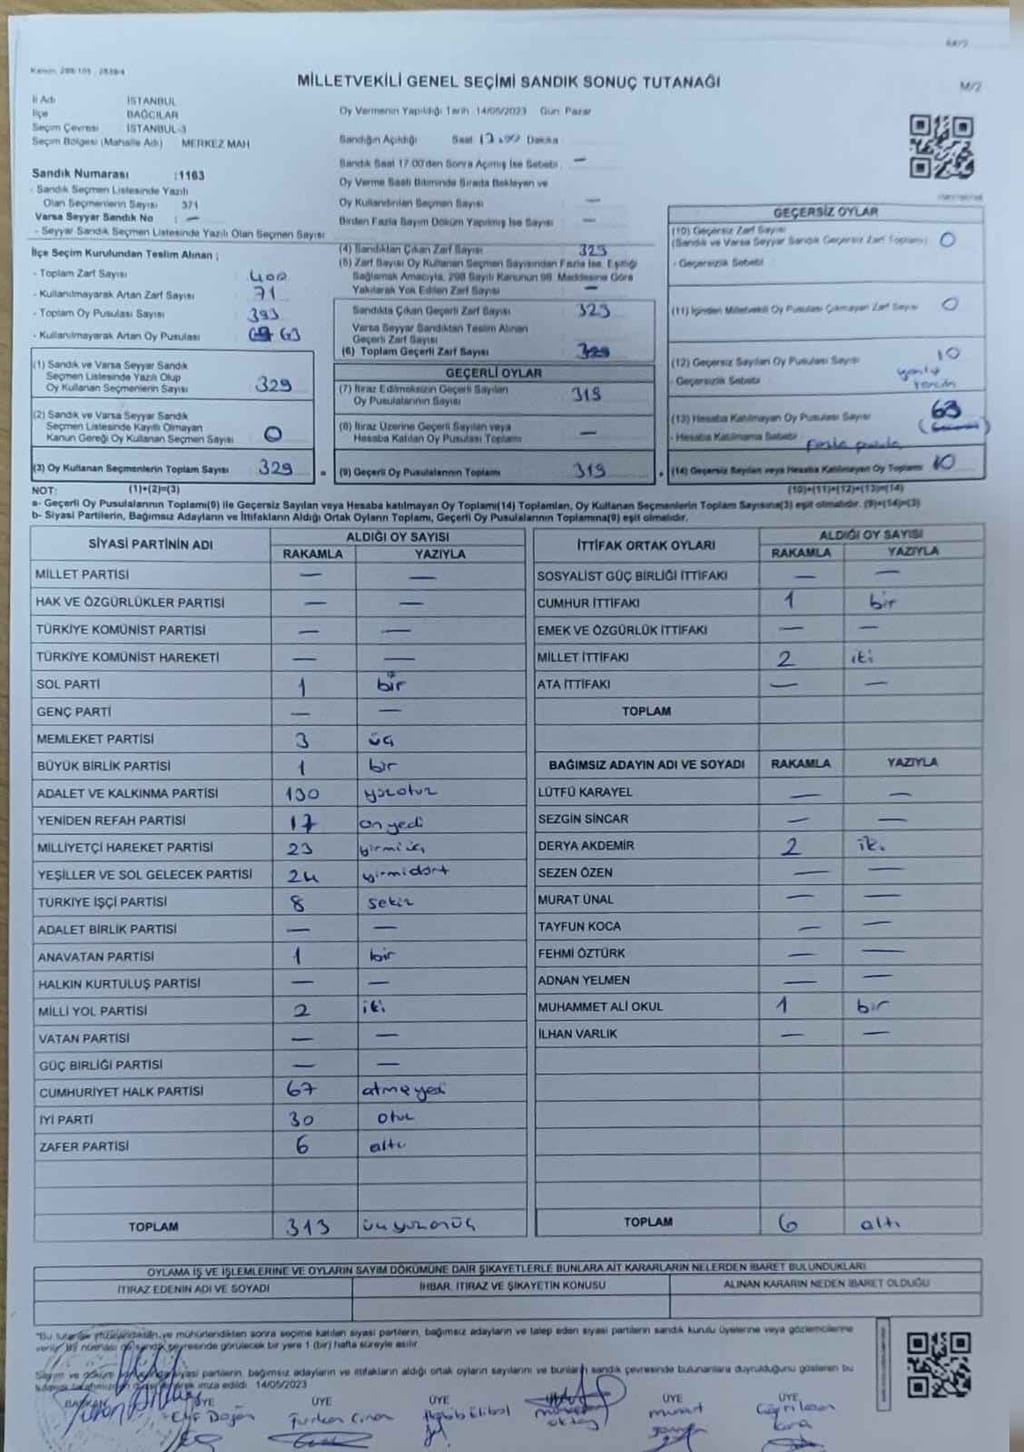 MİLLETVEKİLİ GENEL SEÇİMİ SANDIK SONUÇ TUTANAĞI
M/2
İl Adı İSTANBUL
İlçe BAĞCILAR
Seçim Çevresi İSTANBUL-3
Seçim Bölgesi (Mahalle Adı) MERKEZ MAH
Oy Vermenin Yapıldığı Tarih 14/05/2023 Gün Pazar
Sandığın Açıldığı Saat Dakika
Sandık Saat 17.00'den Sonra Açılmış İse Sebebi —
Oy Verme Saati Bitiminde Sırada Bekleyen ve
Oy Kullandırılan Seçmen Sayısı —
Birden Fazla Sayım Döküm Yapılmış İse Sayısı —
Sandık Numarası :1163
- Sandık Seçmen Listesinde Yazılı
Olan Seçmenlerin Sayısı 371
Varsa Seyyar Sandık No : —
- Seyyar Sandık Seçmen Listesinde Yazılı Olan Seçmen Sayısı
İlçe Seçim Kurulundan Teslim Alınan ;
- Toplam Zarf Sayısı 400
- Kullanılmayarak Artan Zarf Sayısı 71
- Toplam Oy Pusulası Sayısı 393
- Kullanılmayarak Artan Oy Pusulası 63
(1) Sandık ve Varsa Seyyar Sandık
Seçmen Listesinde Yazılı Olup
Oy Kullanan Seçmenlerin Sayısı 329
(2) Sandık ve Varsa Seyyar Sandık
Seçmen Listesinde Kayıtlı Olmayan
Kanun Gereği Oy Kullanan Seçmen Sayısı 0
(3) Oy Kullanan Seçmenlerin Toplam Sayısı 329
(4) Sandıktan Çıkan Zarf Sayısı 329
(5) Zarf Sayısı Oy Kullanan Seçmen Sayısından Fazla İse, Eşitliği
Sağlamak Amacıyla, 298 Sayılı Kanunun 98. Maddesine Göre
Yakılarak Yok Edilen Zarf Sayısı —
Sandıkta Çıkan Geçerli Zarf Sayısı 329
Varsa Seyyar Sandıktan Teslim Alınan
Geçerli Zarf Sayısı
(6) Toplam Geçerli Zarf Sayısı 329
GEÇERLİ OYLAR
(7) İtiraz Edilmeksizin Geçerli Sayılan
Oy Pusulalarının Sayısı 319
(8) İtiraz Üzerine Geçerli Sayılan veya
Hesaba Katılan Oy Pusulası Toplamı —
= (9) Geçerli Oy Pusulalarının Toplamı 319
GEÇERSİZ OYLAR
(10) Geçersiz Zarf Sayısı
(Sandık ve Varsa Seyyar Sandık Geçersiz Zarf Toplamı) 0
- Geçersizlik Sebebi
(11) İçinden Milletvekili Oy Pusulası Çıkmayan Zarf Sayısı 0
(12) Geçersiz Sayılan Oy Pusulası Sayısı 10
- Geçersizlik Sebebi
(13) Hesaba Katılmayan Oy Pusulası Sayısı 63
- Hesaba Katılmama Sebebi Fazla pusula
+ (14) Geçersiz Sayılan veya Hesaba Katılmayan Oy Toplamı 10
NOT: (1)+(2)=(3) (10)+(11)+(12)+(13)=(14)
a- Geçerli Oy Pusulalarının Toplamı(9) ile Geçersiz Sayılan veya Hesaba katılmayan Oy Toplamı(14) Toplamları, Oy Kullanan Seçmenlerin Toplam Sayısına(3) eşit olmalıdır. (9)+(14)=(3)
b- Siyasi Partilerin, Bağımsız Adayların ve İttifakların Aldığı Ortak Oyların Toplamı, Geçerli Oy Pusulalarının Toplamına(9) eşit olmalıdır.
SİYASİ PARTİNİN ADI ALDIĞI OY SAYISI
RAKAMLA YAZIYLA
MİLLET PARTİSİ — —
HAK VE ÖZGÜRLÜKLER PARTİSİ — —
TÜRKİYE KOMÜNİST PARTİSİ — —
TÜRKİYE KOMÜNİST HAREKETİ — —
SOL PARTİ 1 bir
GENÇ PARTİ — —
MEMLEKET PARTİSİ 3 üç
BÜYÜK BİRLİK PARTİSİ 1 bir
ADALET VE KALKINMA PARTİSİ 130 yüzotuz
YENİDEN REFAH PARTİSİ 17 onyedi
MİLLİYETÇİ HAREKET PARTİSİ 23 yirmiüç
YEŞİLLER VE SOL GELECEK PARTİSİ 24 yirmidört
TÜRKİYE İŞÇİ PARTİSİ 8 sekiz
ADALET BİRLİK PARTİSİ — —
ANAVATAN PARTİSİ 1 bir
HALKIN KURTULUŞ PARTİSİ — —
MİLLİ YOL PARTİSİ 2 iki
VATAN PARTİSİ — —
GÜÇ BİRLİĞİ PARTİSİ — —
CUMHURİYET HALK PARTİSİ 67 atmışyedi
İYİ PARTİ 30 otuz
ZAFER PARTİSİ 6 altı
TOPLAM 313 üçyüzonüç
İTTİFAK ORTAK OYLARI ALDIĞI OY SAYISI
RAKAMLA YAZIYLA
SOSYALİST GÜÇ BİRLİĞİ İTTİFAKI — —
CUMHUR İTTİFAKI 1 bir
EMEK VE ÖZGÜRLÜK İTTİFAKI — —
MİLLET İTTİFAKI 2 iki
ATA İTTİFAKI — —
TOPLAM
BAĞIMSIZ ADAYIN ADI VE SOYADI RAKAMLA YAZIYLA
LÜTFÜ KARAYEL — —
SEZGİN SİNCAR — —
DERYA AKDEMİR 2 iki
SEZEN ÖZEN — —
MURAT ÜNAL — —
TAYFUN KOCA — —
FEHMİ ÖZTÜRK — —
ADNAN YELMEN — —
MUHAMMET ALİ OKUL 1 bir
İLHAN VARLIK — —
TOPLAM 6 altı
OYLAMA İŞ VE İŞLEMLERİNE VE OYLARIN SAYIM DÖKÜMÜNE DAİR ŞİKAYETLERLE BUNLARA AİT KARARLARIN NELERDEN İBARET BULUNDUKLARI
İTİRAZ EDENİN ADI VE SOYADI İHBAR, İTİRAZ VE ŞİKAYETİN KONUSU ALINAN KARARIN NEDEN İBARET OLDUĞU
mühürlendikten sonra seçime katılan siyasi partilerin, bağımsız adayların ve talep eden siyasi partilerin sandık kurulu üyelerine veya gözlemcilerine
görülecek bir yere 1 (bir) hafta süreyle asılır.
siyasi partilerin, bağımsız adayların ve ittifakların aldığı ortak oyların sayılarını ve bunların sandık çevresinde bulunanlara duyurulduğunu gösteren bu
imza edildi. 14/05/2023
BAŞKAN ÜYE ÜYE ÜYE ÜYE ÜYE
Elif Doğan Furkan Çınar